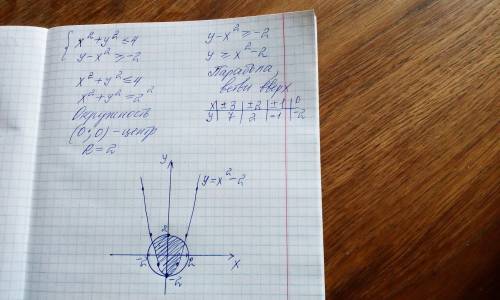 { x²+y²≤4
y-x²≥-2
x²+y²≤4
x²+y²=2²
Окружность
(0;0)-центр
R=2
y-x²≥-2
y≥x²-2
Парабола,
ветви вверх
x ±3 ±2 ±1 0
y 7 2 -1 -2
y
y=x²-2
2
-2 2 x
-2